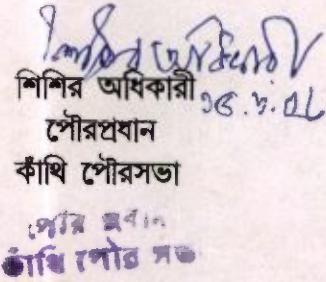 শিশির অধিকারী
শিশির অধিকারী
পৌরপ্রধান
কাঁথি পৌরসভা
পৌর প্রধান
কাঁথি পৌর সভা